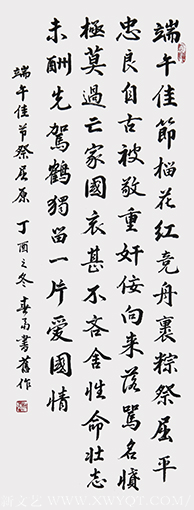 端午佳節榴花紅競舟裹粽祭屈平
忠良自古被敬重奸佞向来落罵名憤
極莫過亡家國哀甚不吝舍性命壯志
未酬先駕鶴獨留一片愛國情
端午佳节祭屈原 丁酉之冬春高書舊作
WWW.XWYQT.COM